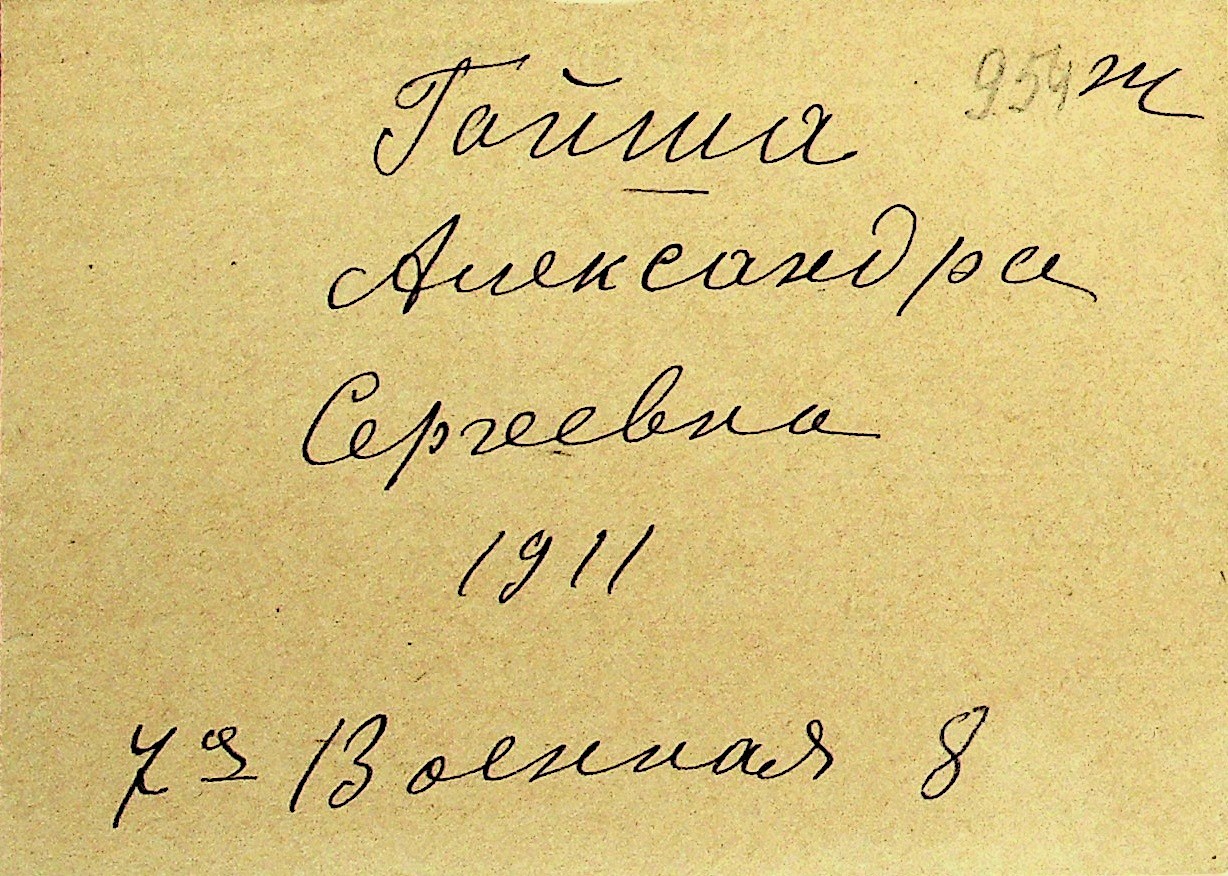 954 ж
Гайша
Александра
Сергеевна
1911
7я Военная 8